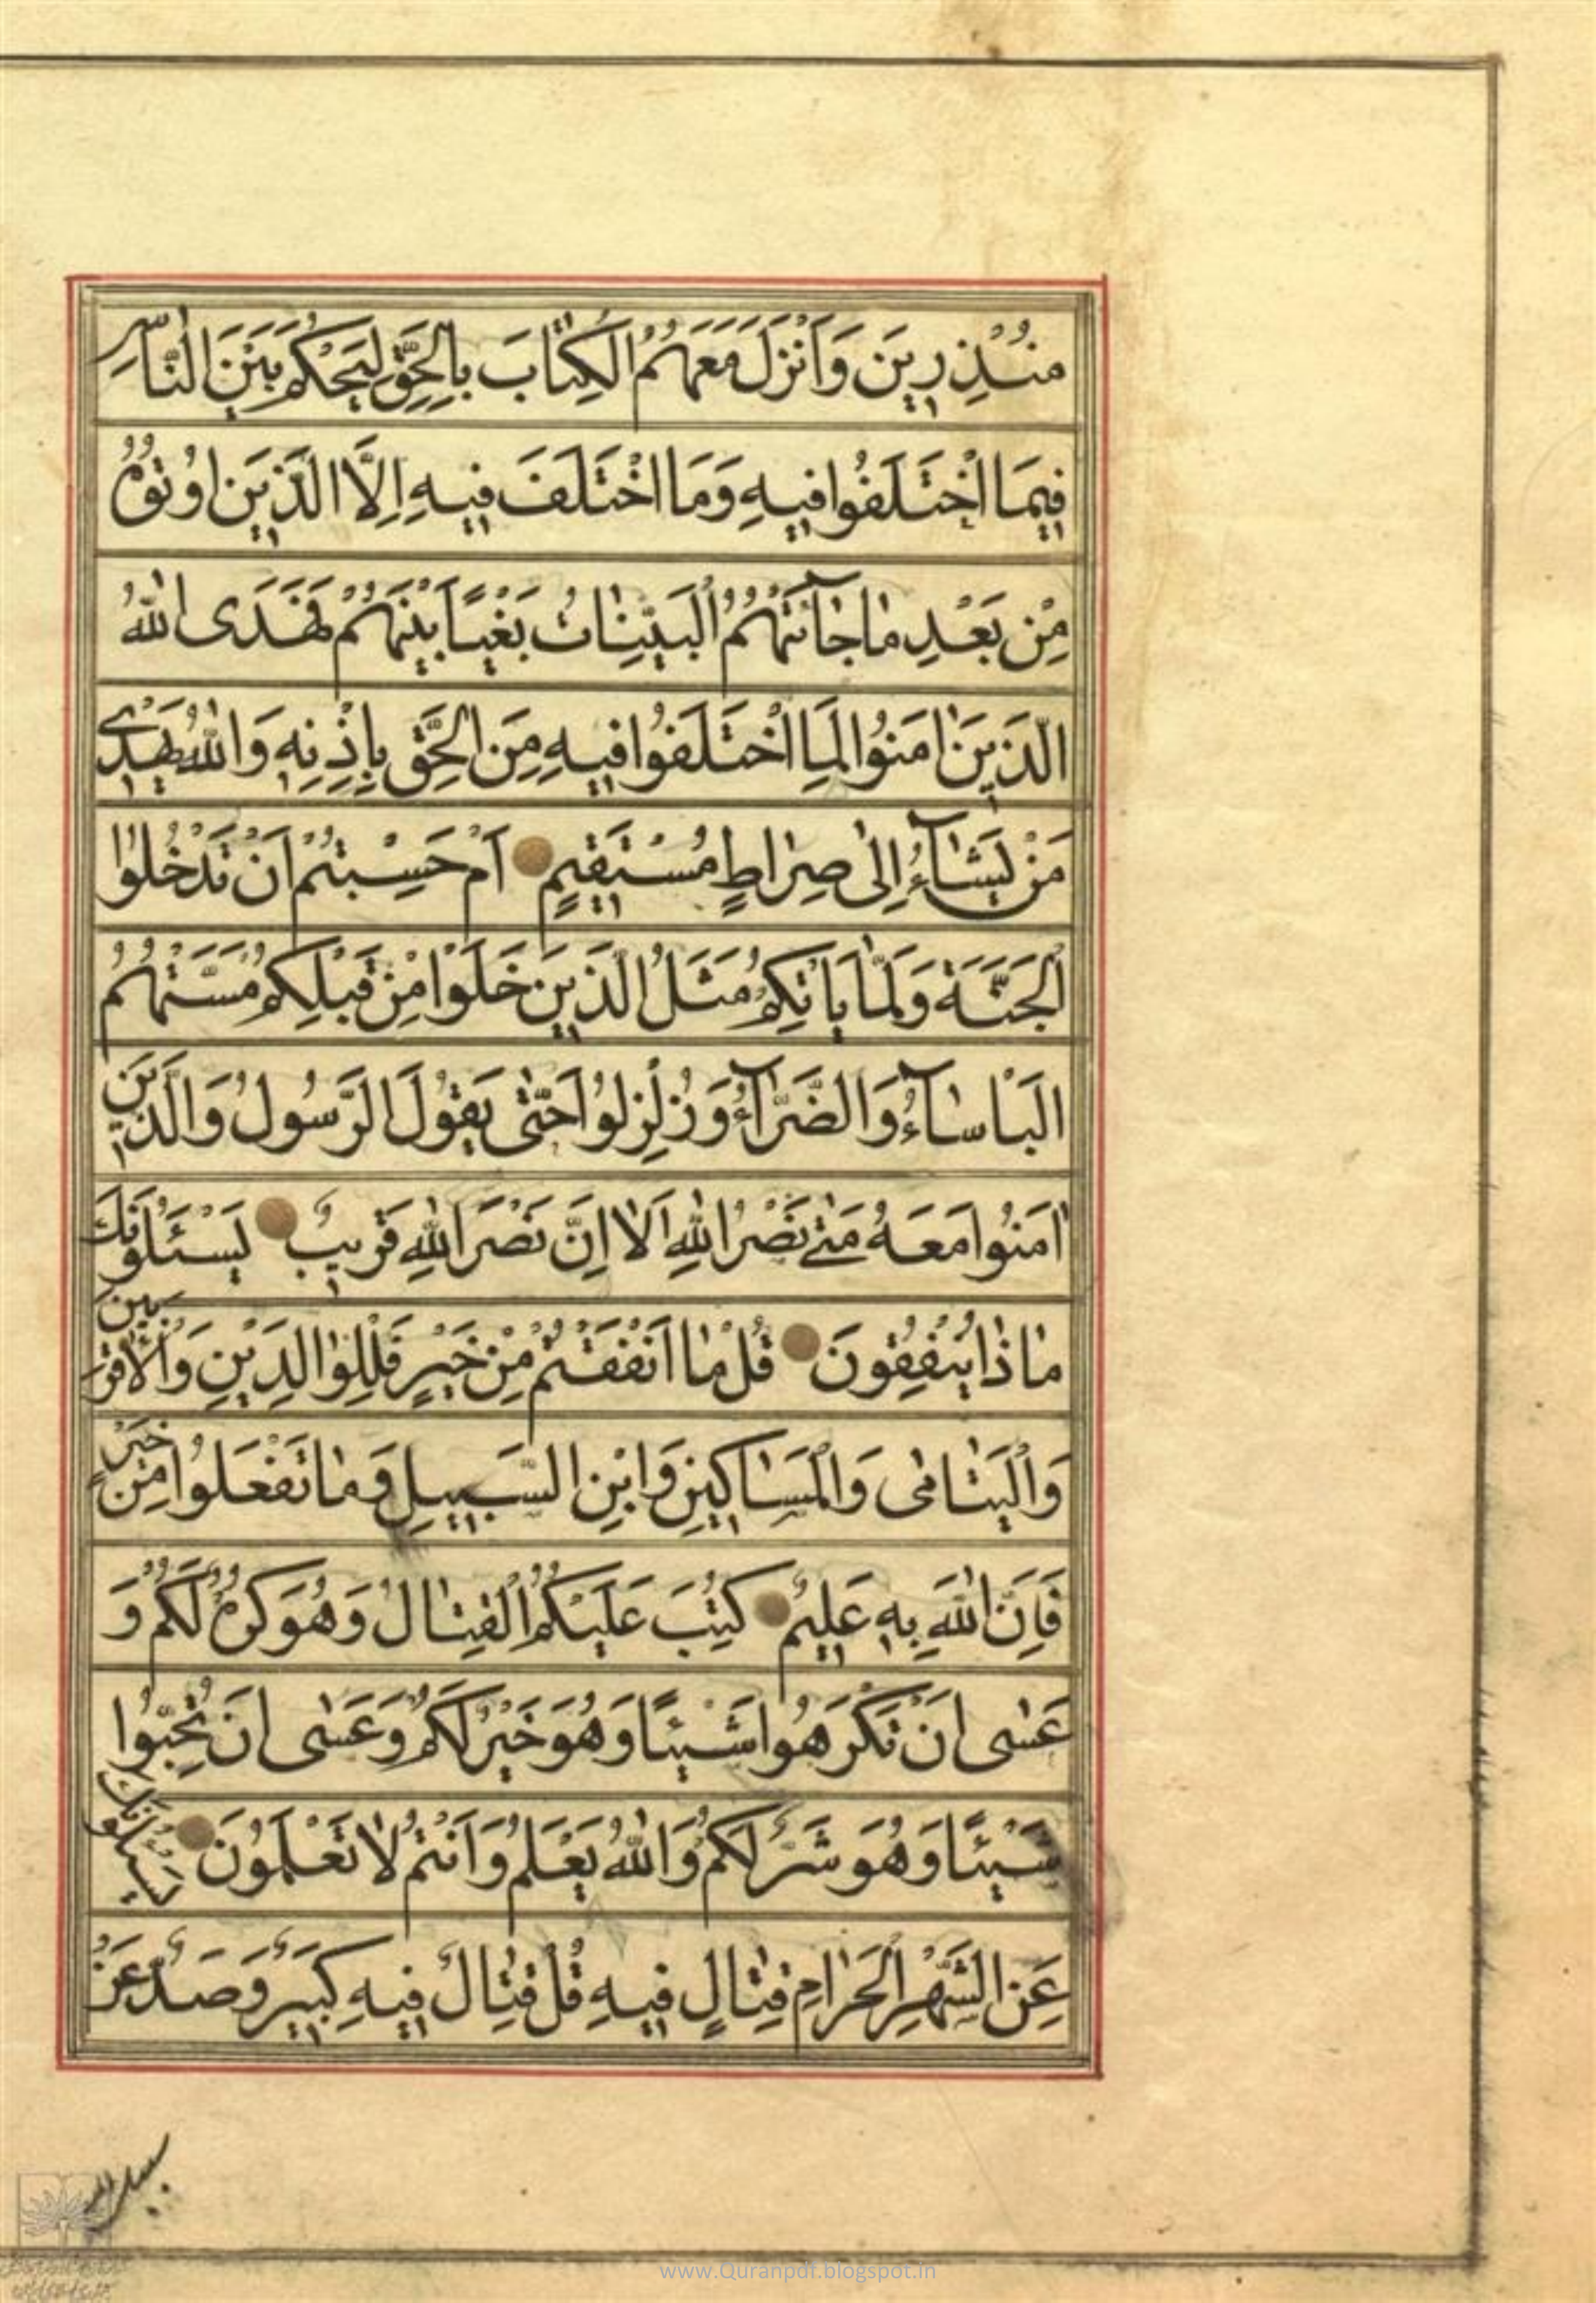 مُنْذِرِينَ وَأَنْزَلَ مَعَهُمُ الْكِتَابَ بِالْحَقِّ لِيَحْكُمَ بَيْنَ النَّاسِ
فِيمَا اخْتَلَفُوا فِيهِ وَمَا اخْتَلَفَ فِيهِ اِلَّا الَّذِينَ اُوتُوهُ
مِنْ بَعْدِ مَا جَآئَتْهُمُ الْبَيِّنَاتُ بَغْيًا بَيْنَهُمْ فَهَدَى اللهُ
الَّذِينَ اٰمَنُوا لِمَا اخْتَلَفُوا فِيهِ مِنَ الْحَقِّ بِاِذْنِهِ وَاللهُ يَهْدِي
مَنْ يَشَآءُ اِلٰى صِرَاطٍ مُسْتَقِيمٍ اَمْ حَسِبْتُمْ اَنْ تَدْخُلُوا
الْجَنَّةَ وَلَمَّا يَاْتِكُمْ مَثَلُ الَّذِينَ خَلَوْا مِنْ قَبْلِكُمْ مَسَّتْهُمُ
الْبَاْسَآءُ وَالضَّرَّآءُ وَزُلْزِلُوا حَتّٰى يَقُولَ الرَّسُولُ وَالَّذِينَ
اٰمَنُوا مَعَهُ مَتٰى نَصْرُ اللهِ اَلَا اِنَّ نَصْرَ اللهِ قَرِيبٌ يَسْئَلُونَكَ
مَاذَا يُنْفِقُونَ قُلْ مَا اَنْفَقْتُمْ مِنْ خَيْرٍ فَلِلْوَالِدَيْنِ وَالْاَقْرَبِينَ
وَالْيَتَامٰى وَالْمَسَاكِينِ وَابْنِ السَّبِيلِ وَمَا تَفْعَلُوا مِنْ خَيْرٍ
فَاِنَّ اللهَ بِهِ عَلِيمٌ كُتِبَ عَلَيْكُمُ الْقِتَالُ وَهُوَ كُرْهٌ لَكُمْ وَ
عَسٰى اَنْ تَكْرَهُوا شَيْئًا وَهُوَ خَيْرٌ لَكُمْ وَعَسٰى اَنْ تُحِبُّوا
شَيْئًا وَهُوَ شَرٌّ لَكُمْ وَاللهُ يَعْلَمُ وَاَنْتُمْ لَا تَعْلَمُونَ يَسْئَلُونَكَ
عَنِ الشَّهْرِ الْحَرَامِ قِتَالٍ فِيهِ قُلْ قِتَالٌ فِيهِ كَبِيرٌ وَصَدٌّ عَنْ
سبيل الله
www.Quranpdf.blogspot.in